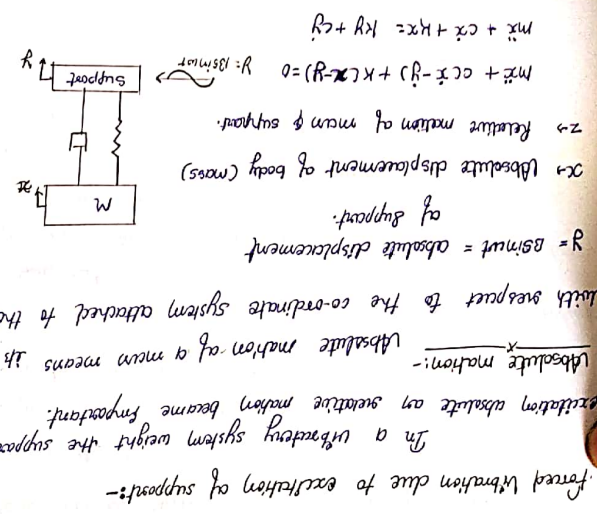 Forced Vibration due to excitation of support:-
In a vibratory system weight the support
excitation absolute as relative motion became important.
Absolute motion:- Absolute motion of a mass means its
with respect to the co-ordinate system attached to the
y = Bsinωt = absolute displacement
of support.
x→ Absolute displacement of body (mass)
z→ Relative motion of mass & support.
mẍ + c(ẋ-ẏ) + k(x-y) = 0
mẍ + cẋ + kx = ky + cẏ
M
x
Support
y
y = Bsinωt